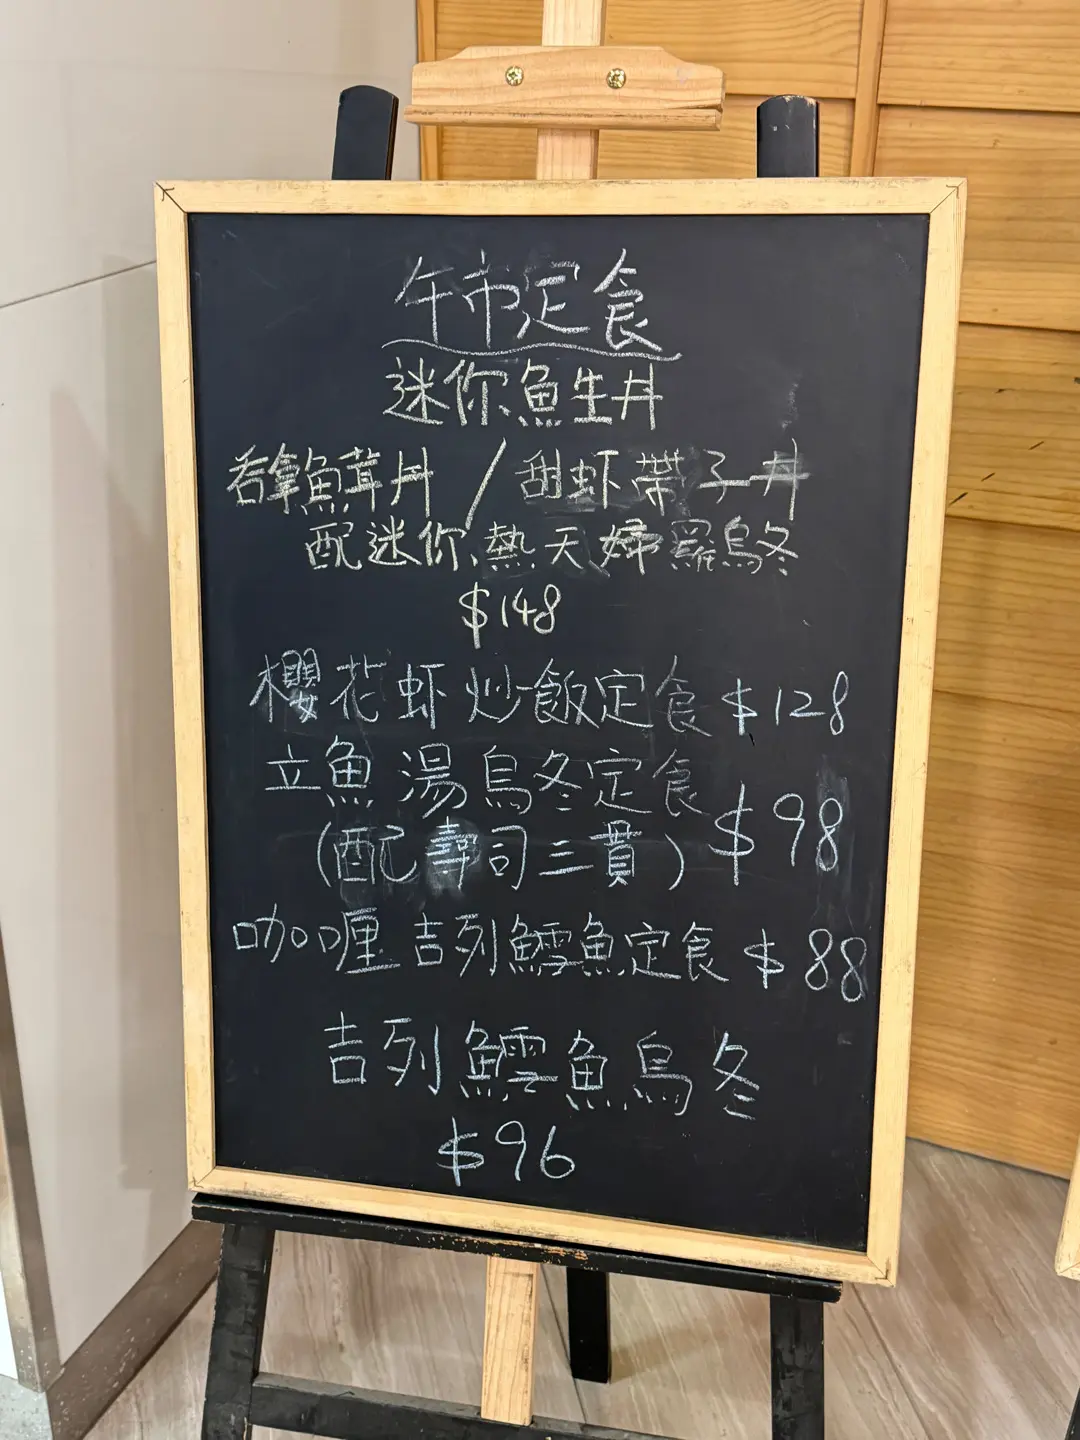 午市定食
迷你魚生丼
吞拿魚茸丼/甜虾帶子丼
配迷你熱天婦羅烏冬
$148
櫻花虾炒飯定食 $128
立魚湯烏冬定食
(配壽司三貫) $98
咖喱吉列鱈魚定食 $88
吉列鱈魚烏冬
$96